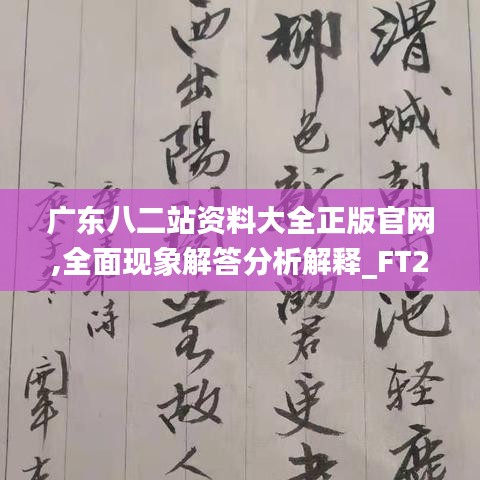 广东八二站资料大全正版官网
,全面现象解答分析解释_FT2
渭城朝雨浥轻
柳色新勸君更
西出陽關無故人